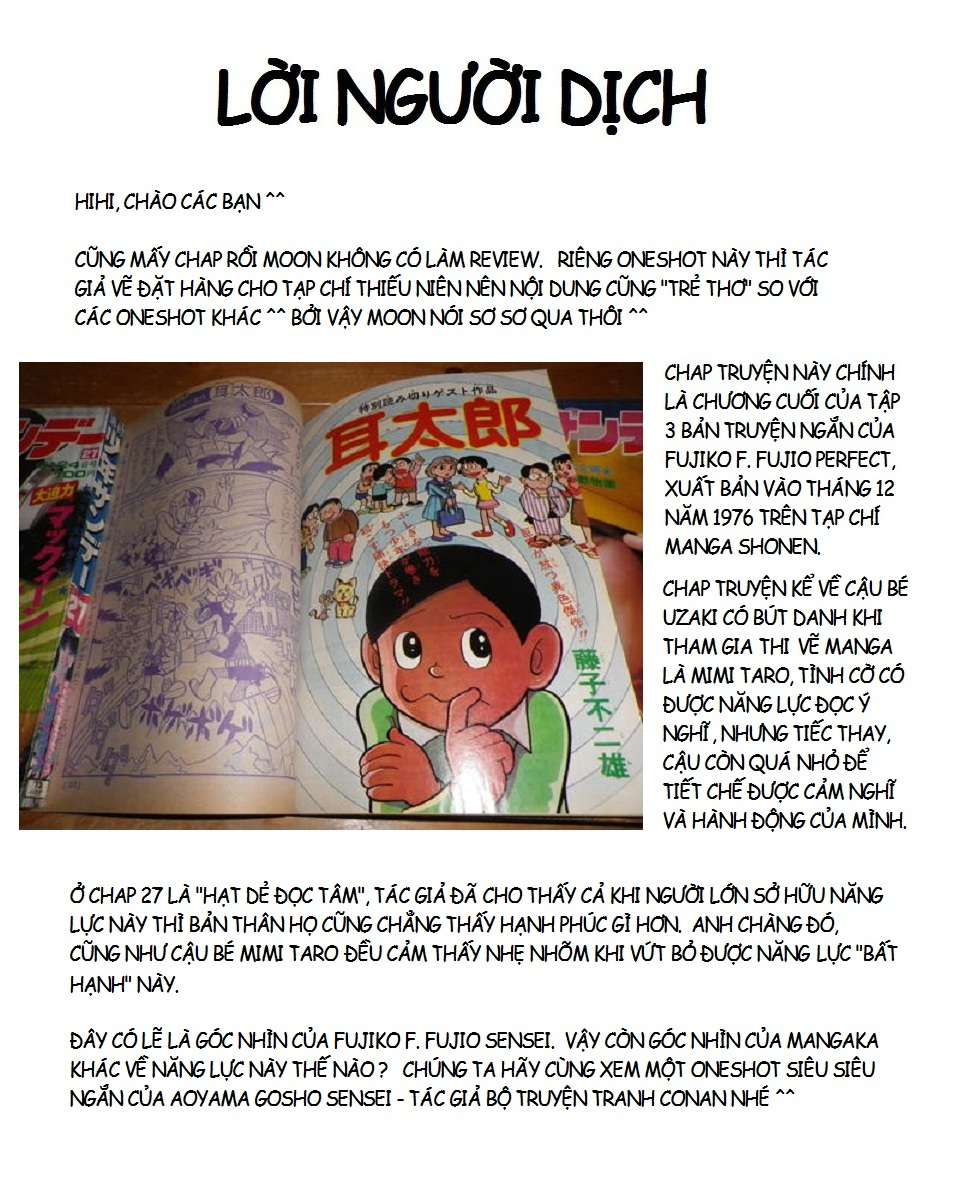 LỜI NGƯỜI DỊCH
HIHI, CHÀO CÁC BẠN ^^
CŨNG MẤY CHAP RỒI MOON KHÔNG CÓ LÀM REVIEW. RIÊNG ONESHOT NÀY THÌ TÁC
GIẢ VẼ ĐẶT HÀNG CHO TẠP CHÍ THIẾU NIÊN NÊN NỘI DUNG CŨNG "TRẺ THƠ" SO VỚI
CÁC ONESHOT KHÁC ^^ BỞI VẬY MOON NÓI SƠ SƠ QUA THÔI ^^
特別読み切りゲスト作品
耳太郎
藤子不二雄
耳太郎
大迫力
マックィーン
CHAP TRUYỆN NÀY CHÍNH
LÀ CHƯƠNG CUỐI CỦA TẬP
3 BẢN TRUYỆN NGẮN CỦA
FUJIKO F. FUJIO PERFECT,
XUẤT BẢN VÀO THÁNG 12
NĂM 1976 TRÊN TẠP CHÍ
MANGA SHONEN.
CHAP TRUYỆN KỂ VỀ CẬU BÉ
UZAKI CÓ BÚT DANH KHI
THAM GIA THI VẼ MANGA
LÀ MIMI TARO, TÌNH CỜ CÓ
ĐƯỢC NĂNG LỰC ĐỌC Ý
NGHĨ, NHƯNG TIẾC THAY,
CẬU CÒN QUÁ NHỎ ĐỂ
TIẾT CHẾ ĐƯỢC CẢM NGHĨ
VÀ HÀNH ĐỘNG CỦA MÌNH.
Ở CHAP 27 LÀ "HẠT DẺ ĐỌC TÂM", TÁC GIẢ ĐÃ CHO THẤY CẢ KHI NGƯỜI LỚN SỞ HỮU NĂNG
LỰC NÀY THÌ BẢN THÂN HỌ CŨNG CHẲNG THẤY HẠNH PHÚC GÌ HƠN. ANH CHÀNG ĐÓ,
CŨNG NHƯ CẬU BÉ MIMI TARO ĐỀU CẢM THẤY NHẸ NHÕM KHI VỨT BỎ ĐƯỢC NĂNG LỰC "BẤT
HẠNH" NÀY.
ĐÂY CÓ LẼ LÀ GÓC NHÌN CỦA FUJIKO F. FUJIO SENSEI. VẬY CÒN GÓC NHÌN CỦA MANGAKA
KHÁC VỀ NĂNG LỰC NÀY THẾ NÀO ? CHÚNG TA HÃY CÙNG XEM MỘT ONESHOT SIÊU SIÊU
NGẮN CỦA AOYAMA GOSHO SENSEI - TÁC GIẢ BỘ TRUYỆN TRANH CONAN NHÉ ^^